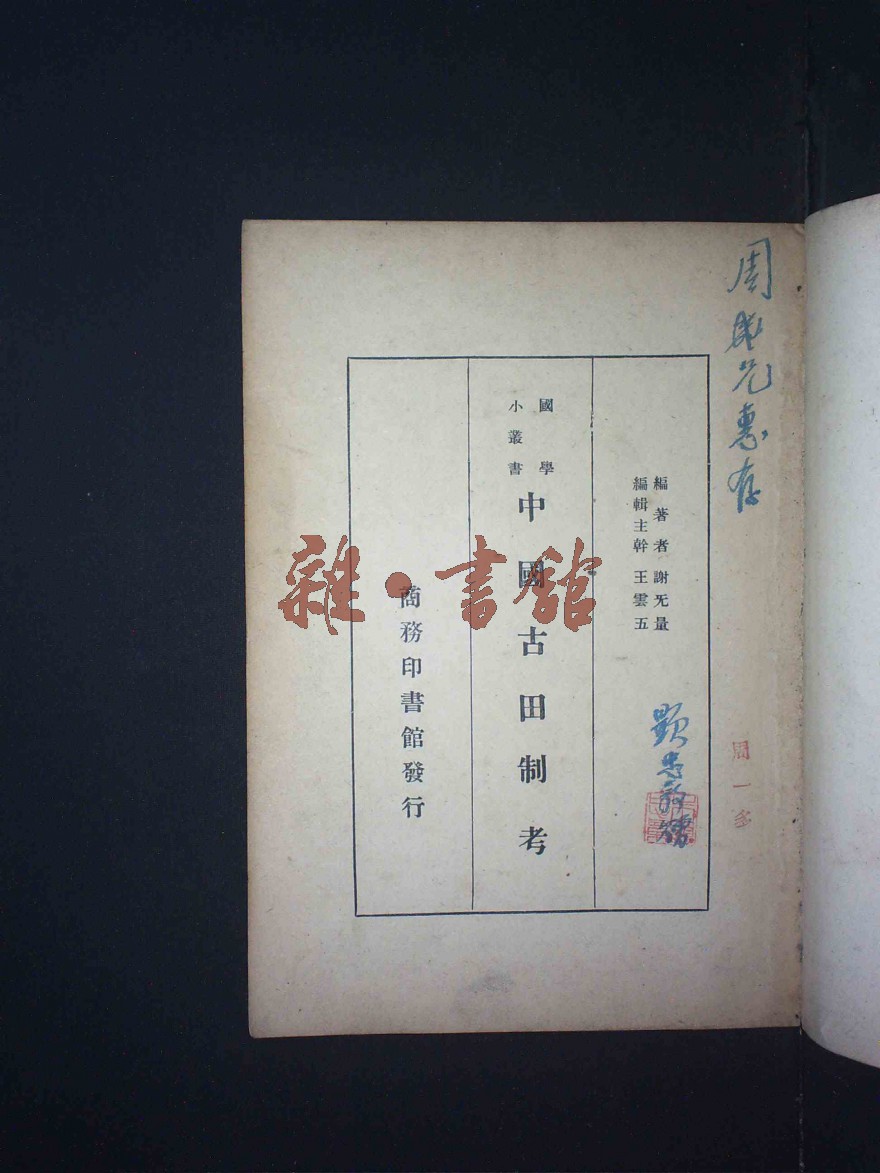 編著者 謝旡量
編輯主幹 王雲五
國學
小叢書
中國古田制考
商務印書館發行
雜·書館
周
惠存
周一多